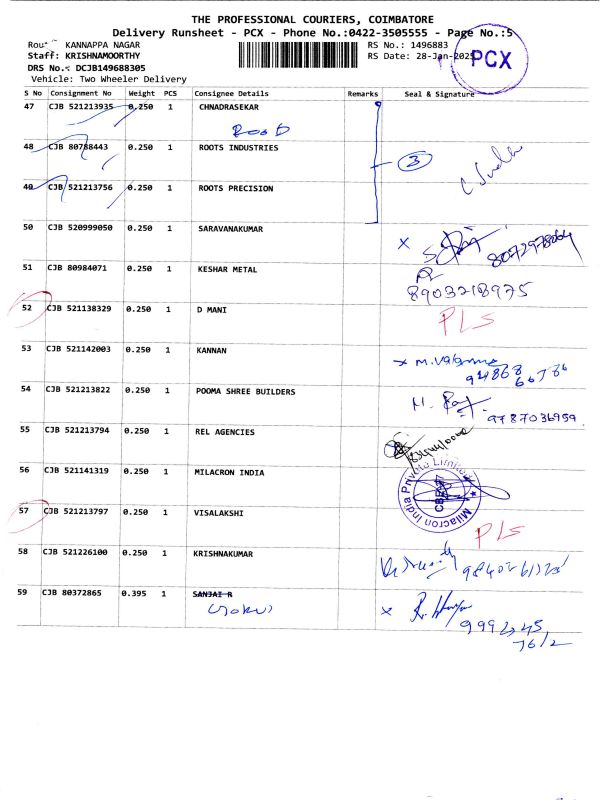 THE PROFESSIONAL COURIERS, COIMBATORE
Delivery Runsheet - PCX - Phone No.:0422-3505555 - Page No.:5
KANNAPPA NAGAR
RS No.: 1496883
Staff: KRISHNAMOORTHY
RS Date: 28-Jan-2025
PCX
DRS No.< DCJB149688305
Vehicle: Two Wheeler Delivery
S No Consignment No Weight PCS Consignee Details Remarks Seal & Signature
47 CJB 521213935 0.250 1 CHNADRASEKAR
48 CJB 80788443 0.250 1 ROOTS INDUSTRIES
3
49 CJB 521213756 0.250 1 ROOTS PRECISION
50 CJB 520999050 0.250 1 SARAVANAKUMAR
51 CJB 80984071 0.250 1 KESHAR METAL
8903218975
52 CJB 521138329 0.250 1 D MANI
PLS
53 CJB 521142003 0.250 1 KANNAN
54 CJB 521213822 0.250 1 POOMA SHREE BUILDERS
9787036959
55 CJB 521213794 0.250 1 REL AGENCIES
56 CJB 521141319 0.250 1 MILACRON INDIA
Milacron India Private Limited
57 CJB 521213797 0.250 1 VISALAKSHI
PLS
58 CJB 521226100 0.250 1 KRISHNAKUMAR
59 CJB 80372865 0.395 1 SANJAI R